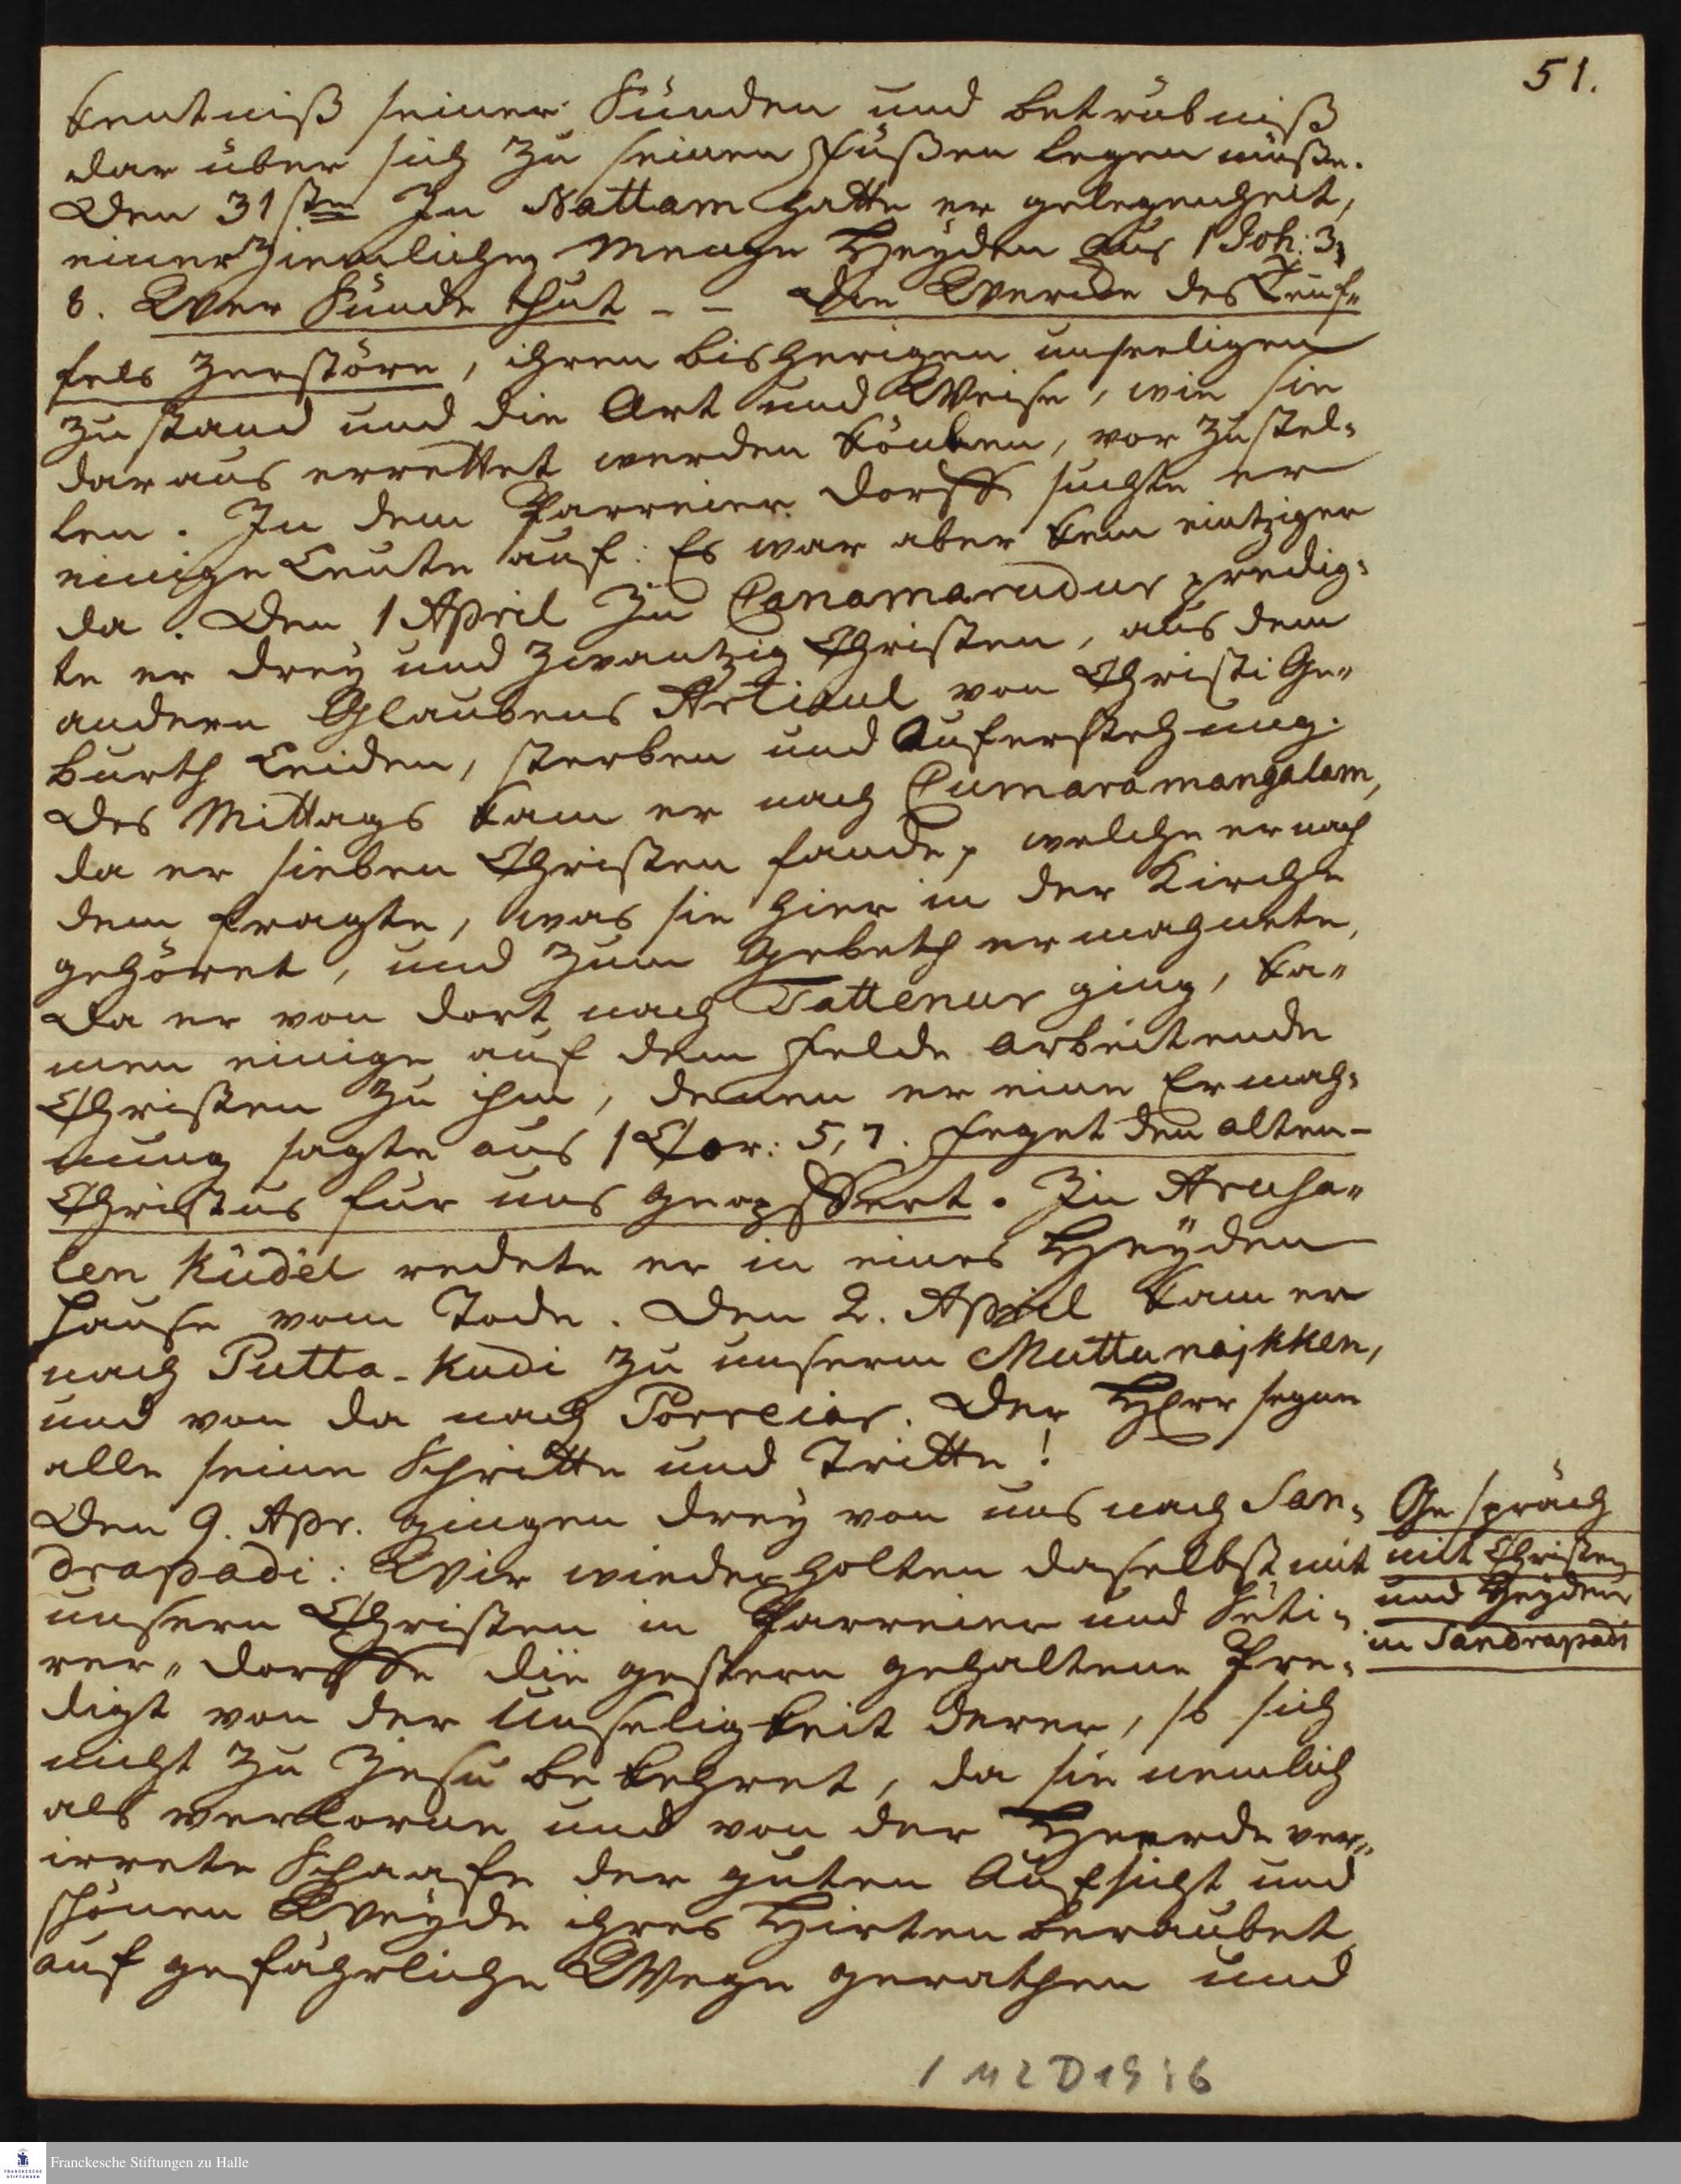 51.
kentniß seiner Sünden und betrübniß
dar über sich zu seinen Füßen legen müße.
Den 31sten In Nattam hatte er gelegenheit,
einer ziemlichen Menge Heyden aus 1 Joh: 3,
8. Wer Sünde thut - - die Wercke des Teuf„
fels zerstöre, ihren bisherigen unseeligen
zu stand und die Art und Weise, wie sie
dar aus errettet werden könten, vor zu stel„
len. In dem Parreier dorffe suchte er
einige Leute auf: Es war aber kein eintziger
da. Den 1 April Zu Canamarudur predig„
te er drey und zwantzig Christen, aus dem
andern Glaubens Articul von Christi Ge„
burth Leiden, sterben und Auferstehung.
Des Mittags kam er nach Cumaramangalam,
da er sieben Christen fande, welche er nach
dem fragte, was sie hier in der Kirche
gehöret, und zum Gebeth ermahnete,
Da er von dort nach Tattenur ging, ka„
men einige auf dem Felde arbeitende
Christen zu ihm, denen er eine Ermah„
nung sagte aus 1 Cor: 5, 7. Feget den alten -
Christus für uns geopffert. Zu Arusa„
len kudel redete er in eines Heyden
Hause vom Tode. Den 2. April kam er
nach Putta-kudi zu unserm Muttunajkken,
und von da nach Porreiar. Der HErr segne
alle seine Schritte und Tritte!
Den 9. Apr. gingen drey von uns nach San„
drapadi: Wir wiederholten daselbst mit
unsern Christen in Parreier und Suti„
rer„dorffe die gestern gehaltene Pre„
digt von der Unseligkeit derer, so sich
nicht zu Jesu be kehret, da sie nemlich
als verlorne und von der Heerde ver„
irrete Schaafe der guten Aufsicht und
schönen Weyde ihres Hirten beraubet
auf gefährliche Wege gerathen und
Gespräch
mit Christen
und Heyden
in Sandrapadi
1 M 2 D 19 : 6
Franckesche Stiftungen zu Halle